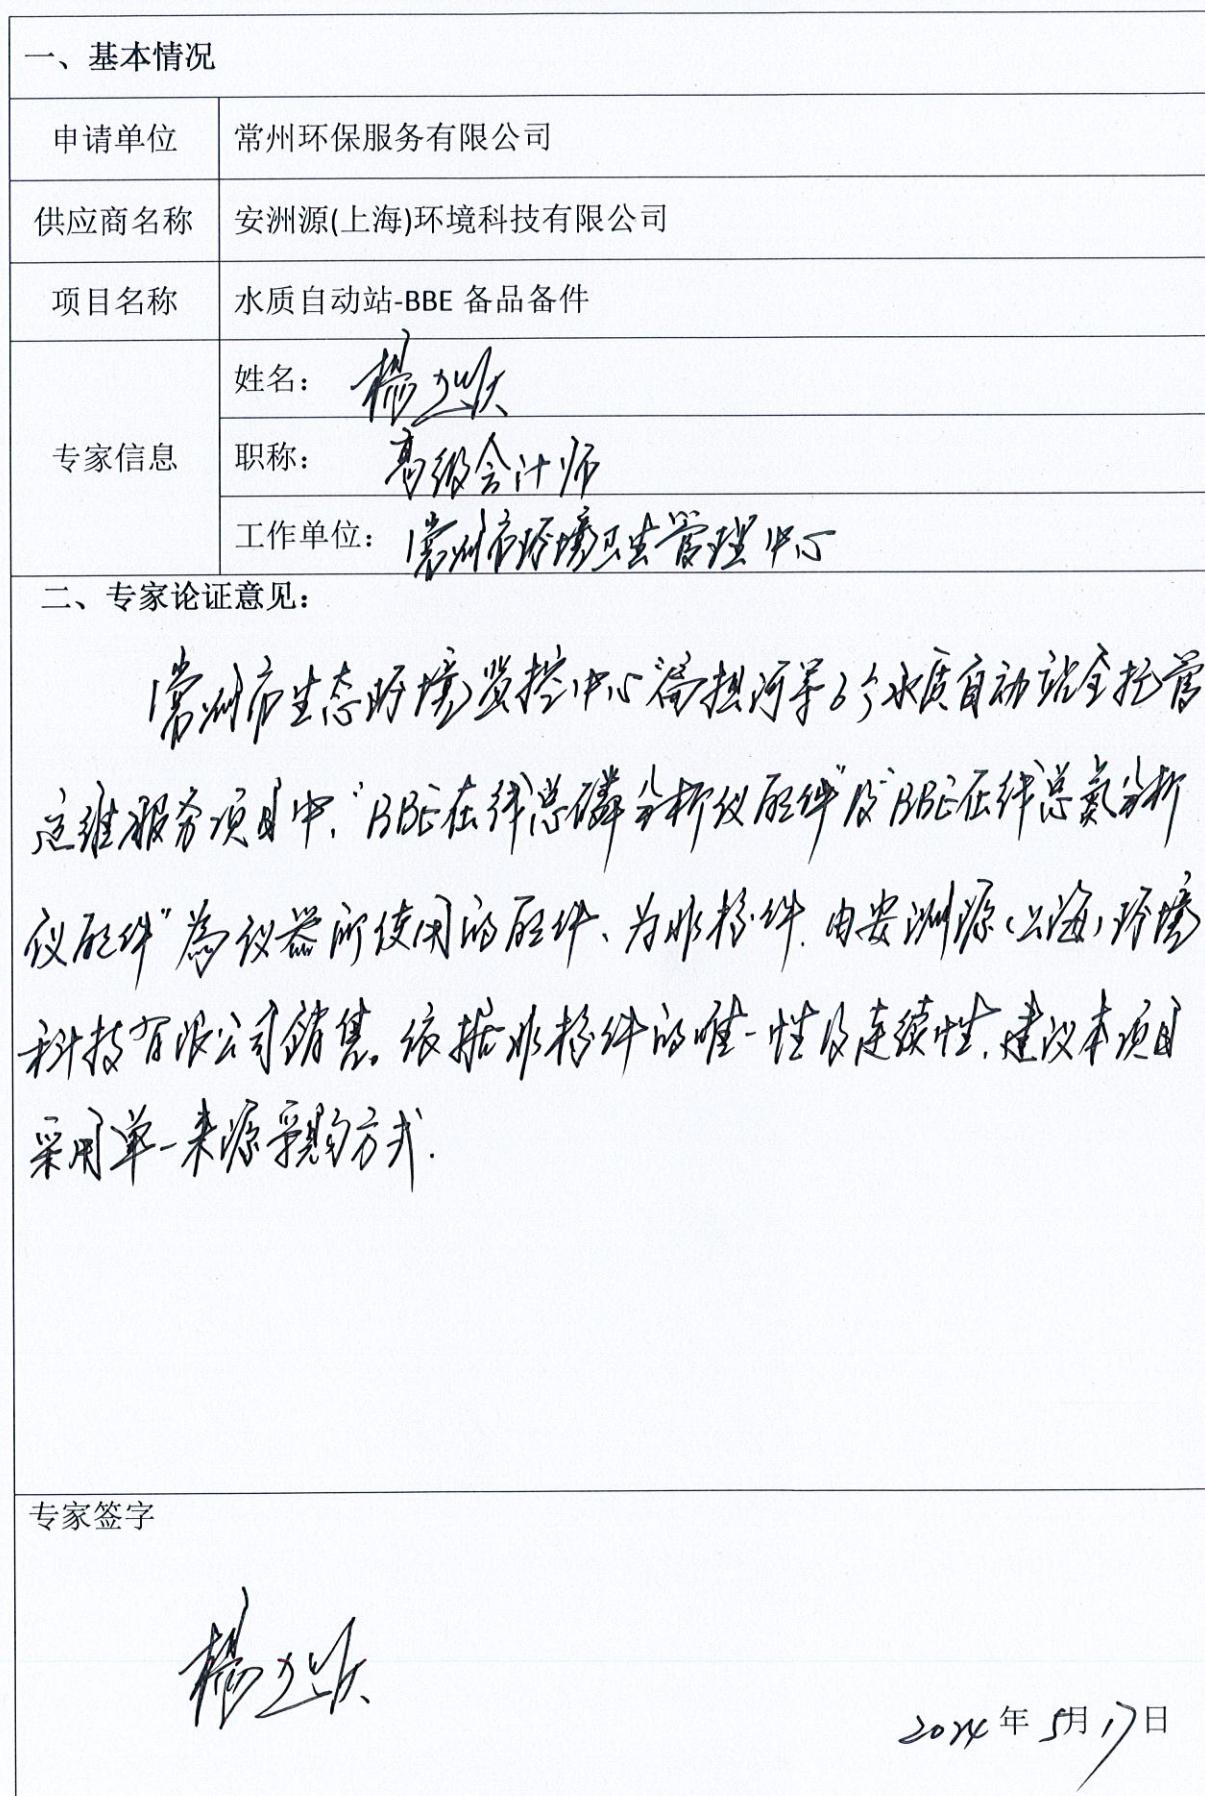 一、基本情况
申请单位 常州环保服务有限公司
供应商名称 安洲源(上海)环境科技有限公司
项目名称 水质自动站-BBE 备品备件
专家信息
姓名： 楊
职称： 高级会计师
工作单位： 常州市环境卫生管理中心
二、专家论证意见：
常州市生态环境监控中心“扁担河等6个水质自动站全托管
运维服务项目中，“BBE在线总磷分析仪配件”及“BBE在线总氮分析
仪配件”為仪器所使用的配件、为非标件. 由安洲源(上海)环境
科技有限公司銷售。依据非标件的唯一性及连续性，建议本项目
采用单一来源采购方式.
专家签字
楊
2024年5月17日